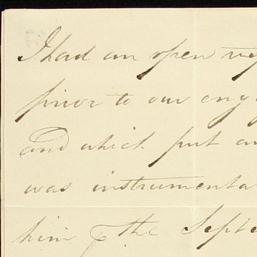 I had an open ve
prior to our eng
and which put an
was instrumenta
him & the Septe